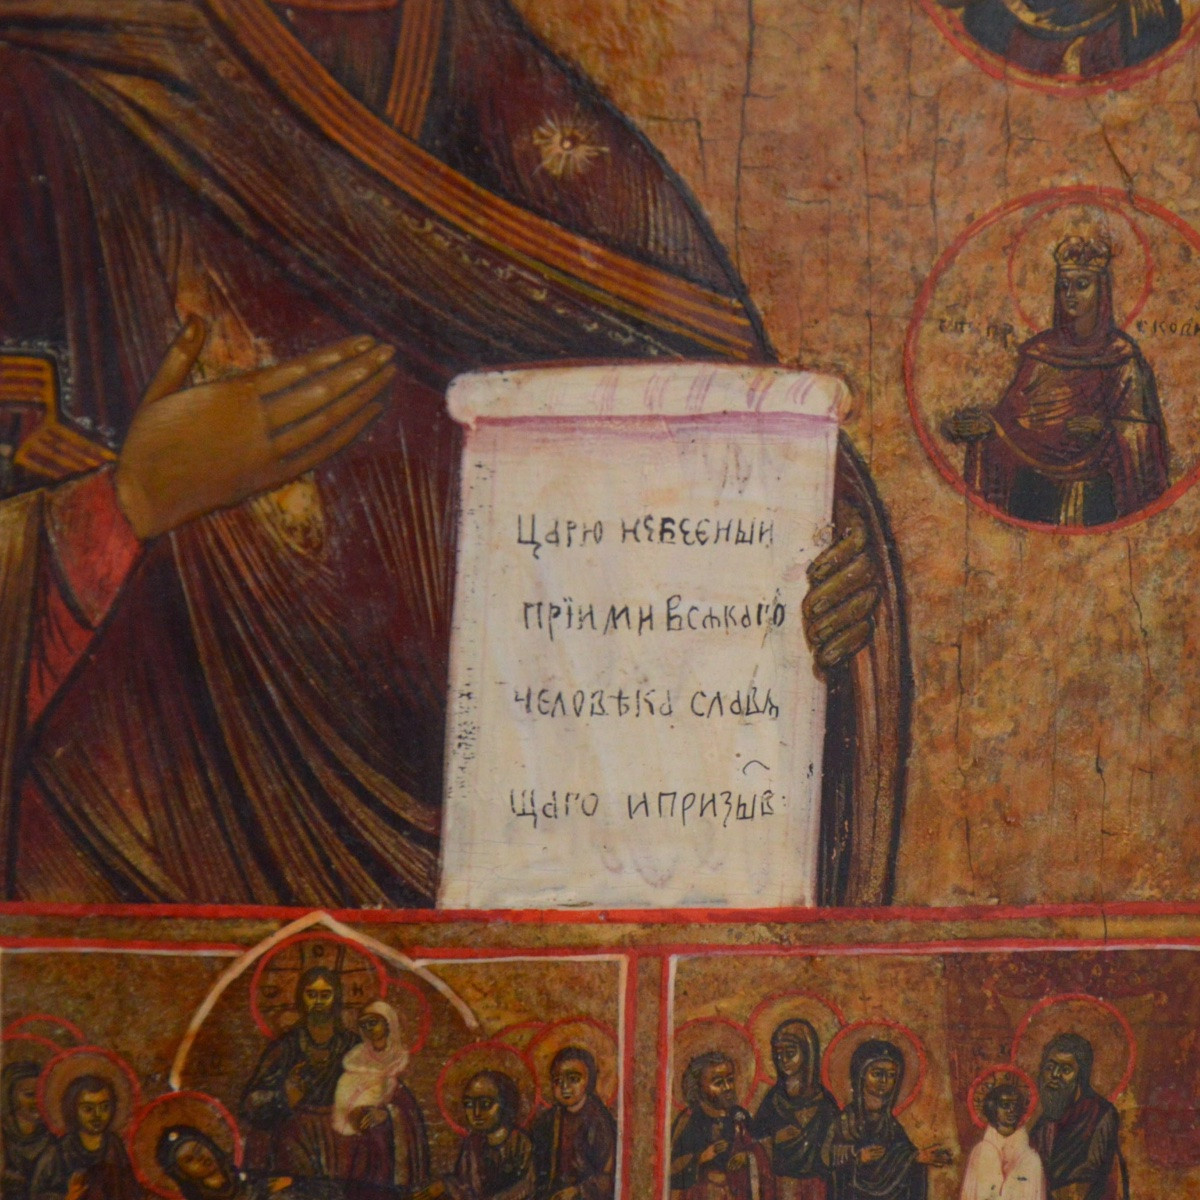 Царю небесныи
прїими всѧкаго
человѣка славѧ
щаго и призыв